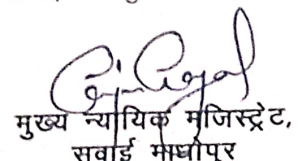 मुख्य न्यायिक मजिस्ट्रेट,
सवाई माधोपुर